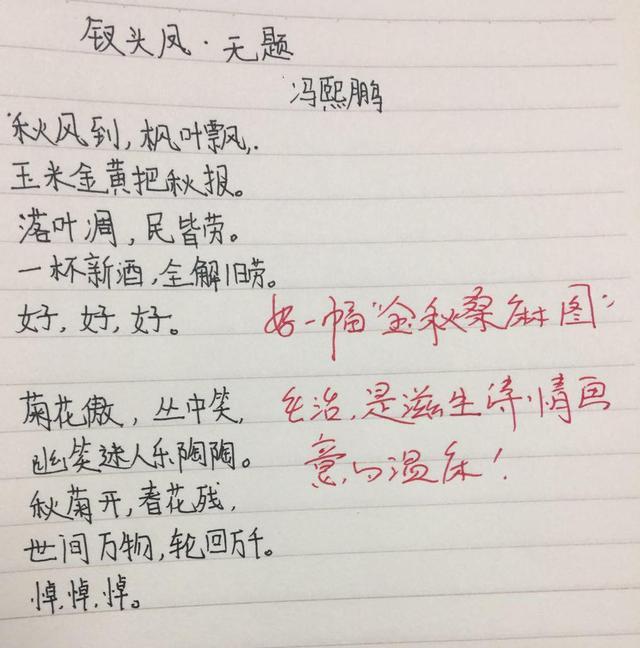 钗头凤·无题
冯熙鹏
秋风到,枫叶飘,.
玉米金黄把秋报。
落叶凋,民皆劳。
一杯新酒,全解旧劳。
好,好,好。
好一幅"金秋桑麻图"
菊花傲,丛中笑,
生活,是滋生诗情画
幽笑迷人乐陶陶。
意的温床!
秋菊开,春花残,
世间万物,轮回万千。
悼,悼,悼。